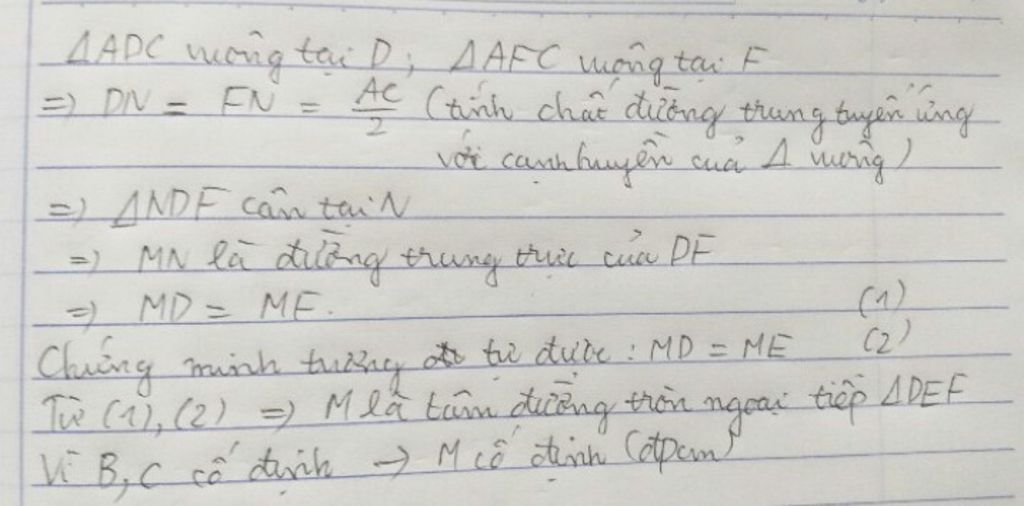 ΔADC vuông tại D; ΔAFC vuông tại F
=> DN = FN = AC/2 (tính chất đường trung tuyến ứng
với cạnh huyền của Δ vuông)
=> ΔNDF cân tại N
=> MN là đường trung trực của DF
=> MD = MF. (1)
Chứng minh tương tự được: MD = ME (2)
Từ (1), (2) => M là tâm đường tròn ngoại tiếp ΔDEF
Vì B, C cố định -> M cố định (đpcm)